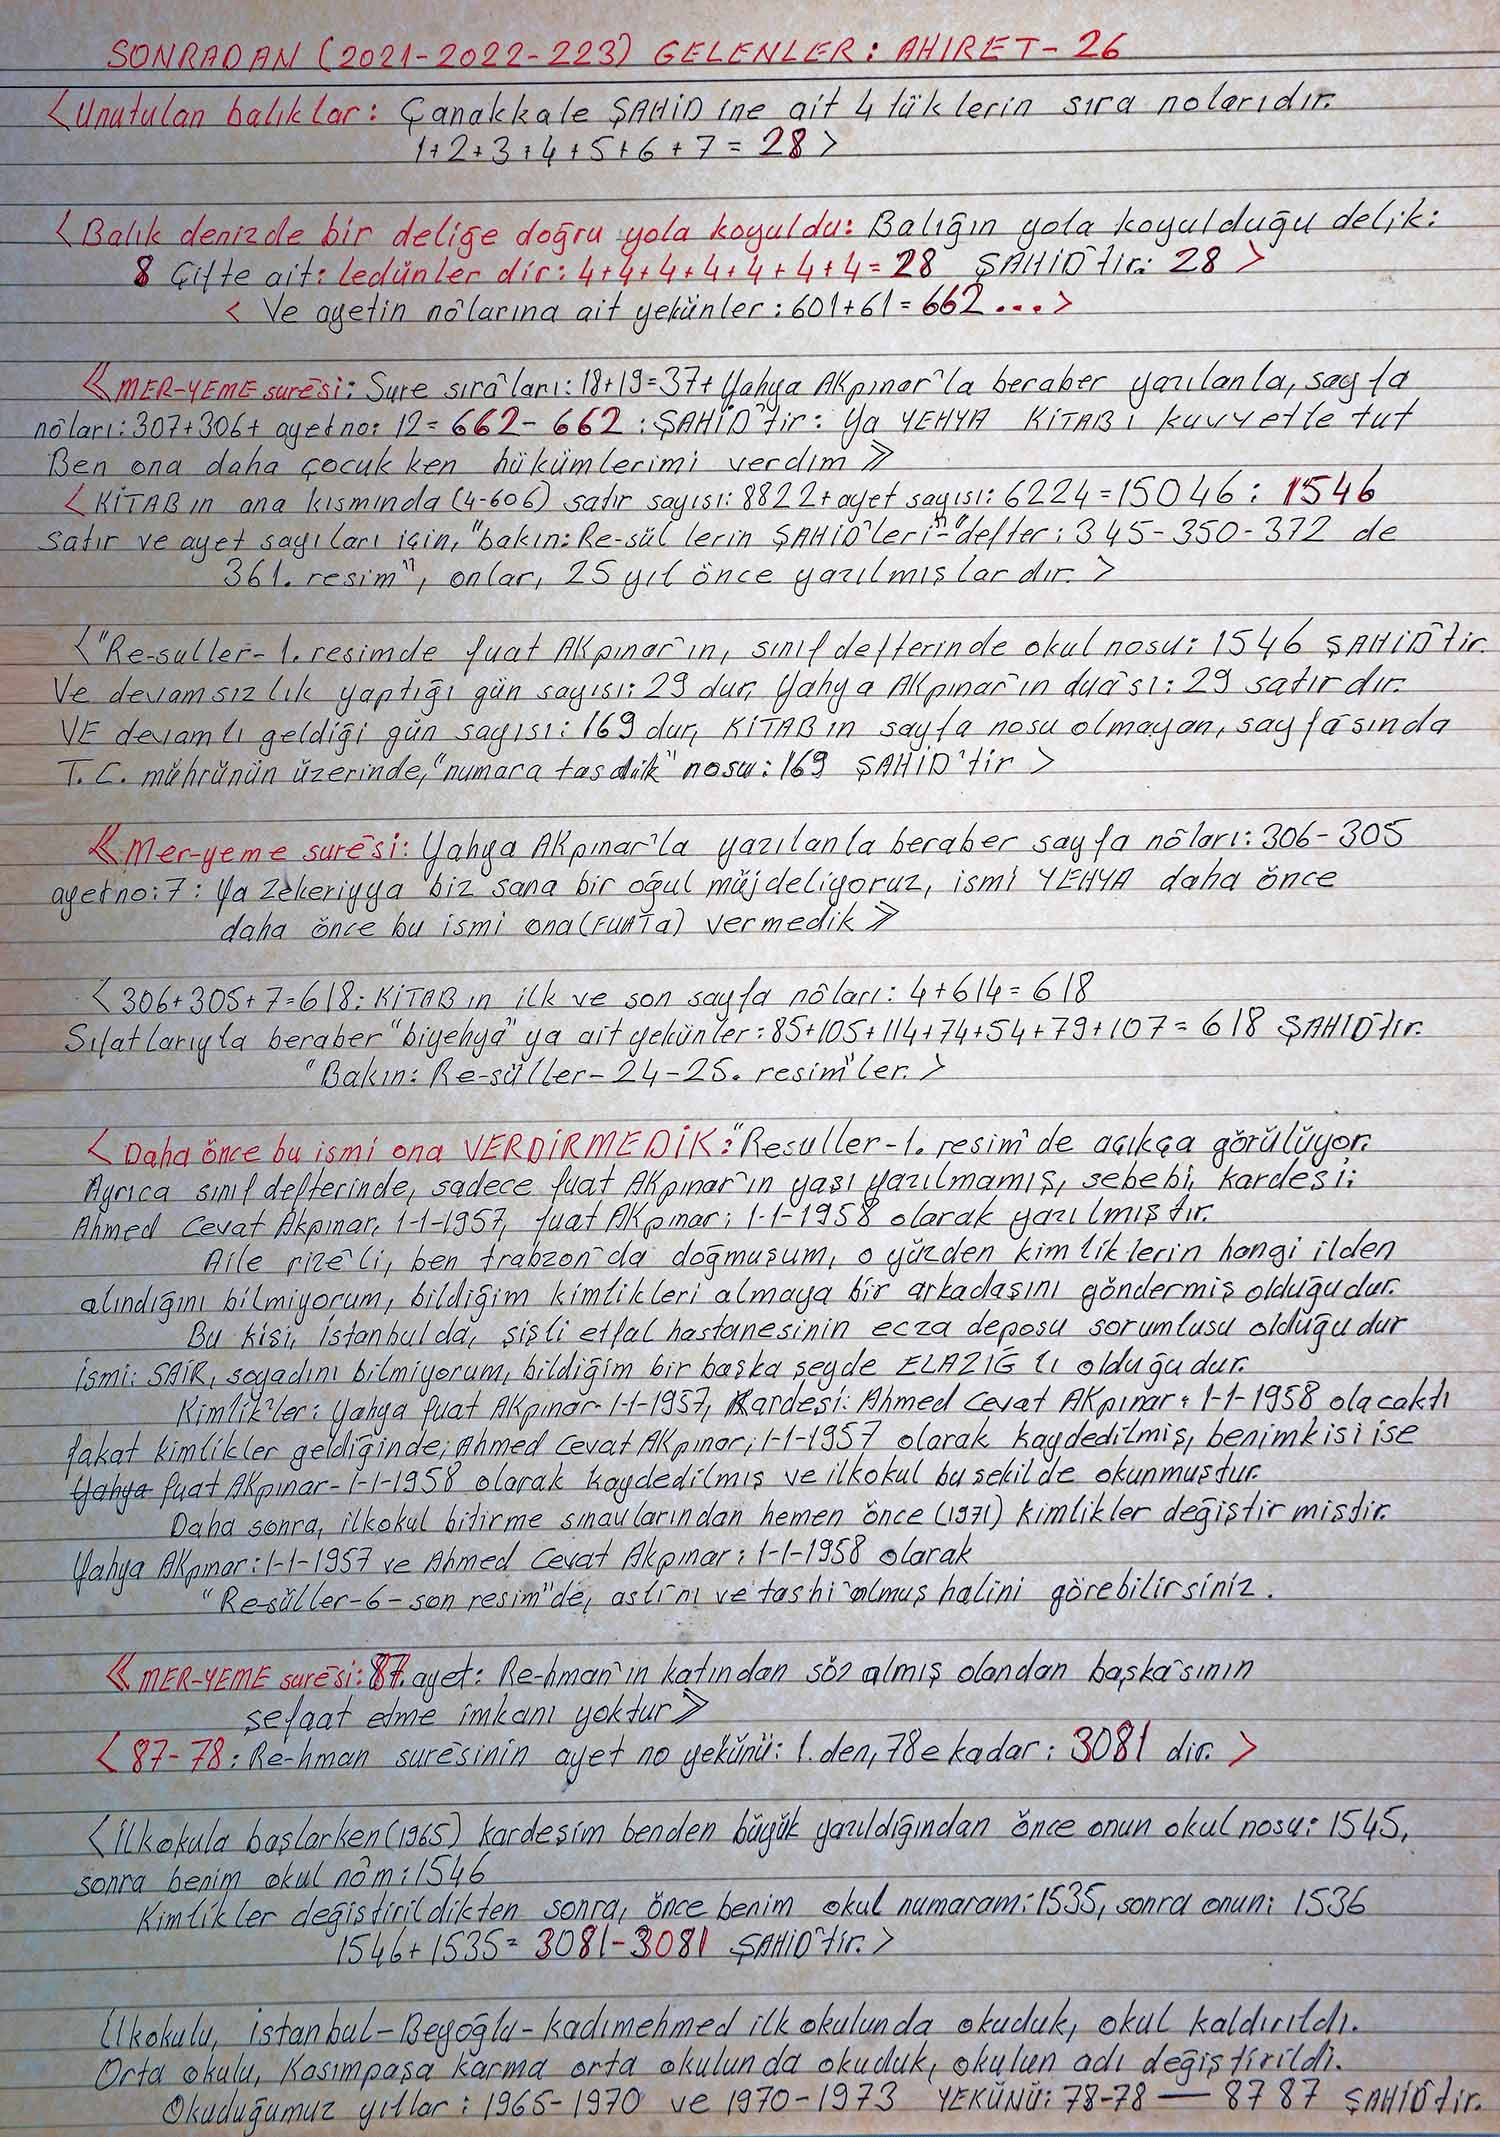 SONRADAN (2021-2022-223) GELENLER: AHIRET-26
<Unutulan balıklar: Çanakkale ŞAHİD ine ait 4 lük lerin sıra nolarıdır.
1+2+3+4+5+6+7=28>
<Balık denizde bir deliğe doğru yola koyuldu: Balığın yola koyulduğu delik:
8 Çifte ait: ledünler dir: 4+4+4+4+4+4+4=28 ŞAHİD'tir: 28>
<Ve ayetin nôlarına ait yekünler: 601+61=662...>
≪MER-YEME surêsi: Sure sırâları: 18+19=37+Yahya AKpınar'la beraber yazılanla, sayfa
nôları: 307+306+ ayet no: 12=662-662: ŞAHİD'tir: Ya YEHYA KİTAB ı kuvvetle tut
Ben ona daha çocuk ken hükümlerimi verdim≫
<KİTAB ın ana kısmında (4-606) satır sayısı: 8822+ayet sayısı: 6224=15046: 1546
Satır ve ayet sayıları için, "bakın: Re-sül lerin ŞAHİD'leri"-"defter: 345-350-372 de
361. resim", onlar, 25 yıl önce yazılmışlardır.>
<"Re-suller-1. resimde fuat AKpınar'ın, sınıf defterinde okul nosu: 1546 ŞAHİD'tir.
Ve devamsızlık yaptığı gün sayısı: 29 dur, Yahya AKpınar'ın duâsı: 29 satırdır.
VE devamlı geldiği gün sayısı: 169 dur, KİTAB ın sayfa nosu olmayan, sayfâsında
T.C. mührünün üzerinde, "numara tasdik" nosu: 169 ŞAHİD'tir>
≪Mer-yeme surêsi: Yahya AKpınar'la yazılanla beraber sayfa nôları: 306-305
ayet no: 7: Ya Zekeriyya biz sana bir oğul müjdeliyoruz, ismi YEHYA daha önce
daha önce bu ismi ona (FUAT'a) vermedik≫
<306+305+7=618: KİTAB ın ilk ve son sayfa nôları: 4+614=618
Sıfatlarıyla beraber "biyehyâ" ya ait yekünler: 85+105+114+74+54+79+107=618 ŞAHİD'tir.
"Bakın: Re-süller-24-25. resim"ler.>
<Daha önce bu ismi ona VERDİRMEDİK: "Resuller-1. resim" de açıkça görülüyor.
Ayrıca sınıf defterinde, sadece fuat AKpınar'ın yaşı yazılmamış, sebebi, kardeşi:
Ahmed Cevat Akpınar, 1-1-1957, fuat AKpınar; 1-1-1958 olarak yazılmıştır.
Aile rize'li, ben trabzon'da doğmuşum, o yüzden kimliklerin hangi ilden
alındığını bilmiyorum, bildiğim kimlikleri almaya bir arkadaşını göndermiş olduğudur.
Bu kişi, İstanbulda, şişli etfal hastanesinin ecza deposu sorumlusu olduğudur
ismi: SAİR, soyadını bilmiyorum, bildiğim bir başka şeyde ELAZIĞ lı olduğudur.
Kimlik'ler: Yahya fuat AKpınar-1-1-1957, Kardeşi: Ahmed Cevat AKpınar: 1-1-1958 olacaktı
fakat kimlikler geldiğinde; Ahmed Cevat AKpınar; 1-1-1957 olarak kaydedilmiş, benimkisi ise
Yahya fuat AKpınar-1-1-1958 olarak kaydedilmiş ve ilkokul bu şekilde okunmuştur.
Daha sonra, ilkokul bitirme sınavlarından hemen önce (1971) kimlikler değiştirmiştir.
Yahya AKpınar: 1-1-1957 ve Ahmed Cevat Akpınar: 1-1-1958 olarak
"Re-süller-6-son resim"de, aslını ve tashi olmuş halini görebilirsiniz.
≪MER-YEME surêsi: 87. ayet: Re-hman'ın katından söz almış olandan başkâsının
şefaat etme imkanı yoktur≫
<87-78: Re-hman surêsinin ayet no yekünü: 1.den, 78 e kadar: 3081 dir.>
<İlkokula başlarken (1965) kardeşim benden büyük yazıldığından önce onun okul nosu: 1545,
sonra benim okul nôm: 1546
Kimlikler değiştirildikten sonra, önce benim okul numaram: 1535, sonra onun: 1536
1546+1535=3081-3081 ŞAHİD'tir.>
İlkokulu, İstanbul-Beyoğlu-kadımehmed ilkokulunda okuduk, okul kaldırıldı.
Orta okulu, Kasımpaşa karma orta okulunda okuduk, okulun adı değiştirildi.
Okuduğumuz yıllar: 1965-1970 ve 1970-1973 YEKÜNÜ: 78-78 — 87 87 ŞAHİD'tir.